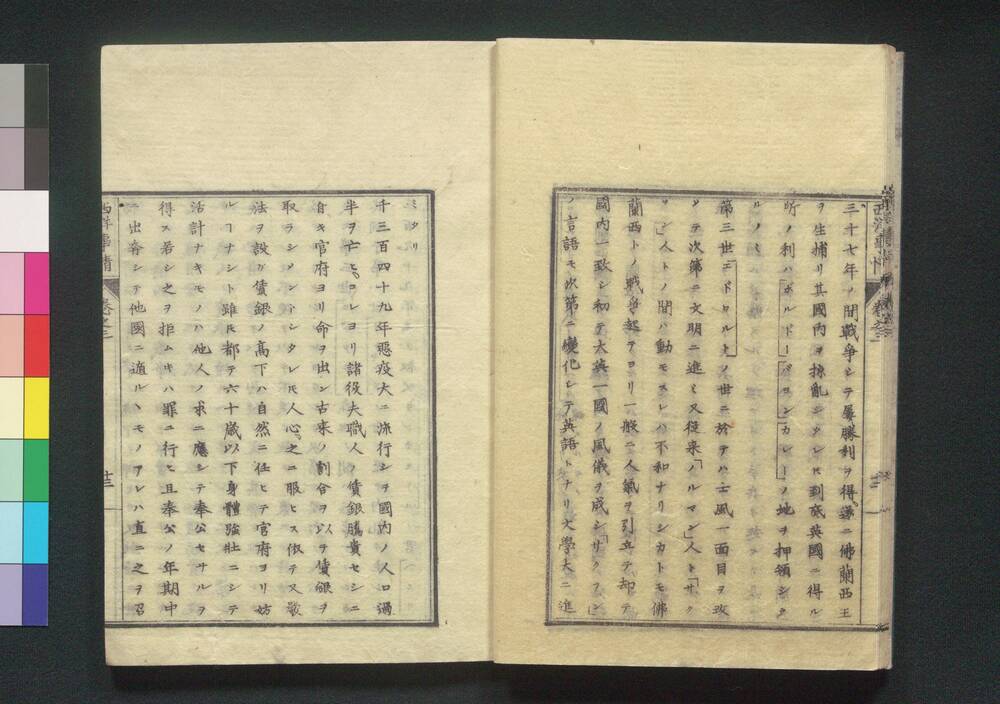 三十七年ノ間戦争シテ屡勝利ヲ得遂ニ佛蘭西王
ヲ生捕リ其國内ヲ擾亂シタレ𪜈到底英國ニ得ル
所ノ利ハ「ボルドー」「バヨン」「カレー」ノ地ヲ押領シタ
ルノミ
第三世「エドワルト」ノ世ニ於テハ士風一面目ヲ改
メテ次第ニ文明ニ進ミ又従来「ノルマン」人ト「サク
ソン」人トノ間ハ動モスレハ不和ナリシカトモ佛
蘭西トノ戦争起テヨリ一般ニ人氣ヲ引立テ却テ
國内一致シ初テ大英一國ノ風儀ヲ成シ
ノ言語モ次第ニ變化シテ英語トナリ文學大ニ進
ミタリ
千三百四十九年悪疫大ニ流行シテ國内ノ人口過
半ヲ亡ヒコレヨリ諸役夫職人ノ賃銀騰貴セシニ
自キ官府ヨリ命ヲ出シ古来ノ割合ヲ以テ賃銀ヲ
取ラシメントシタレ𪜈人心之ニ服セス依テ又嚴
法ヲ設ケ賃銀ノ高下ハ自然ニ任セテ官府ヨリ妨
ルヿナシト雖𪜈都テ六十歳以下身體強壮ニシテ
活計ナキモノハ他人ノ求ニ應シテ奉公セサルヲ
得ス若シ之ヲ拒ムキハ罪ニ行ヒ且奉公ノ年期中
ニ出奔シテ他國ニ適ルヽモノアレハ直ニ之ヲ召
西洋事情
卷之三
十三